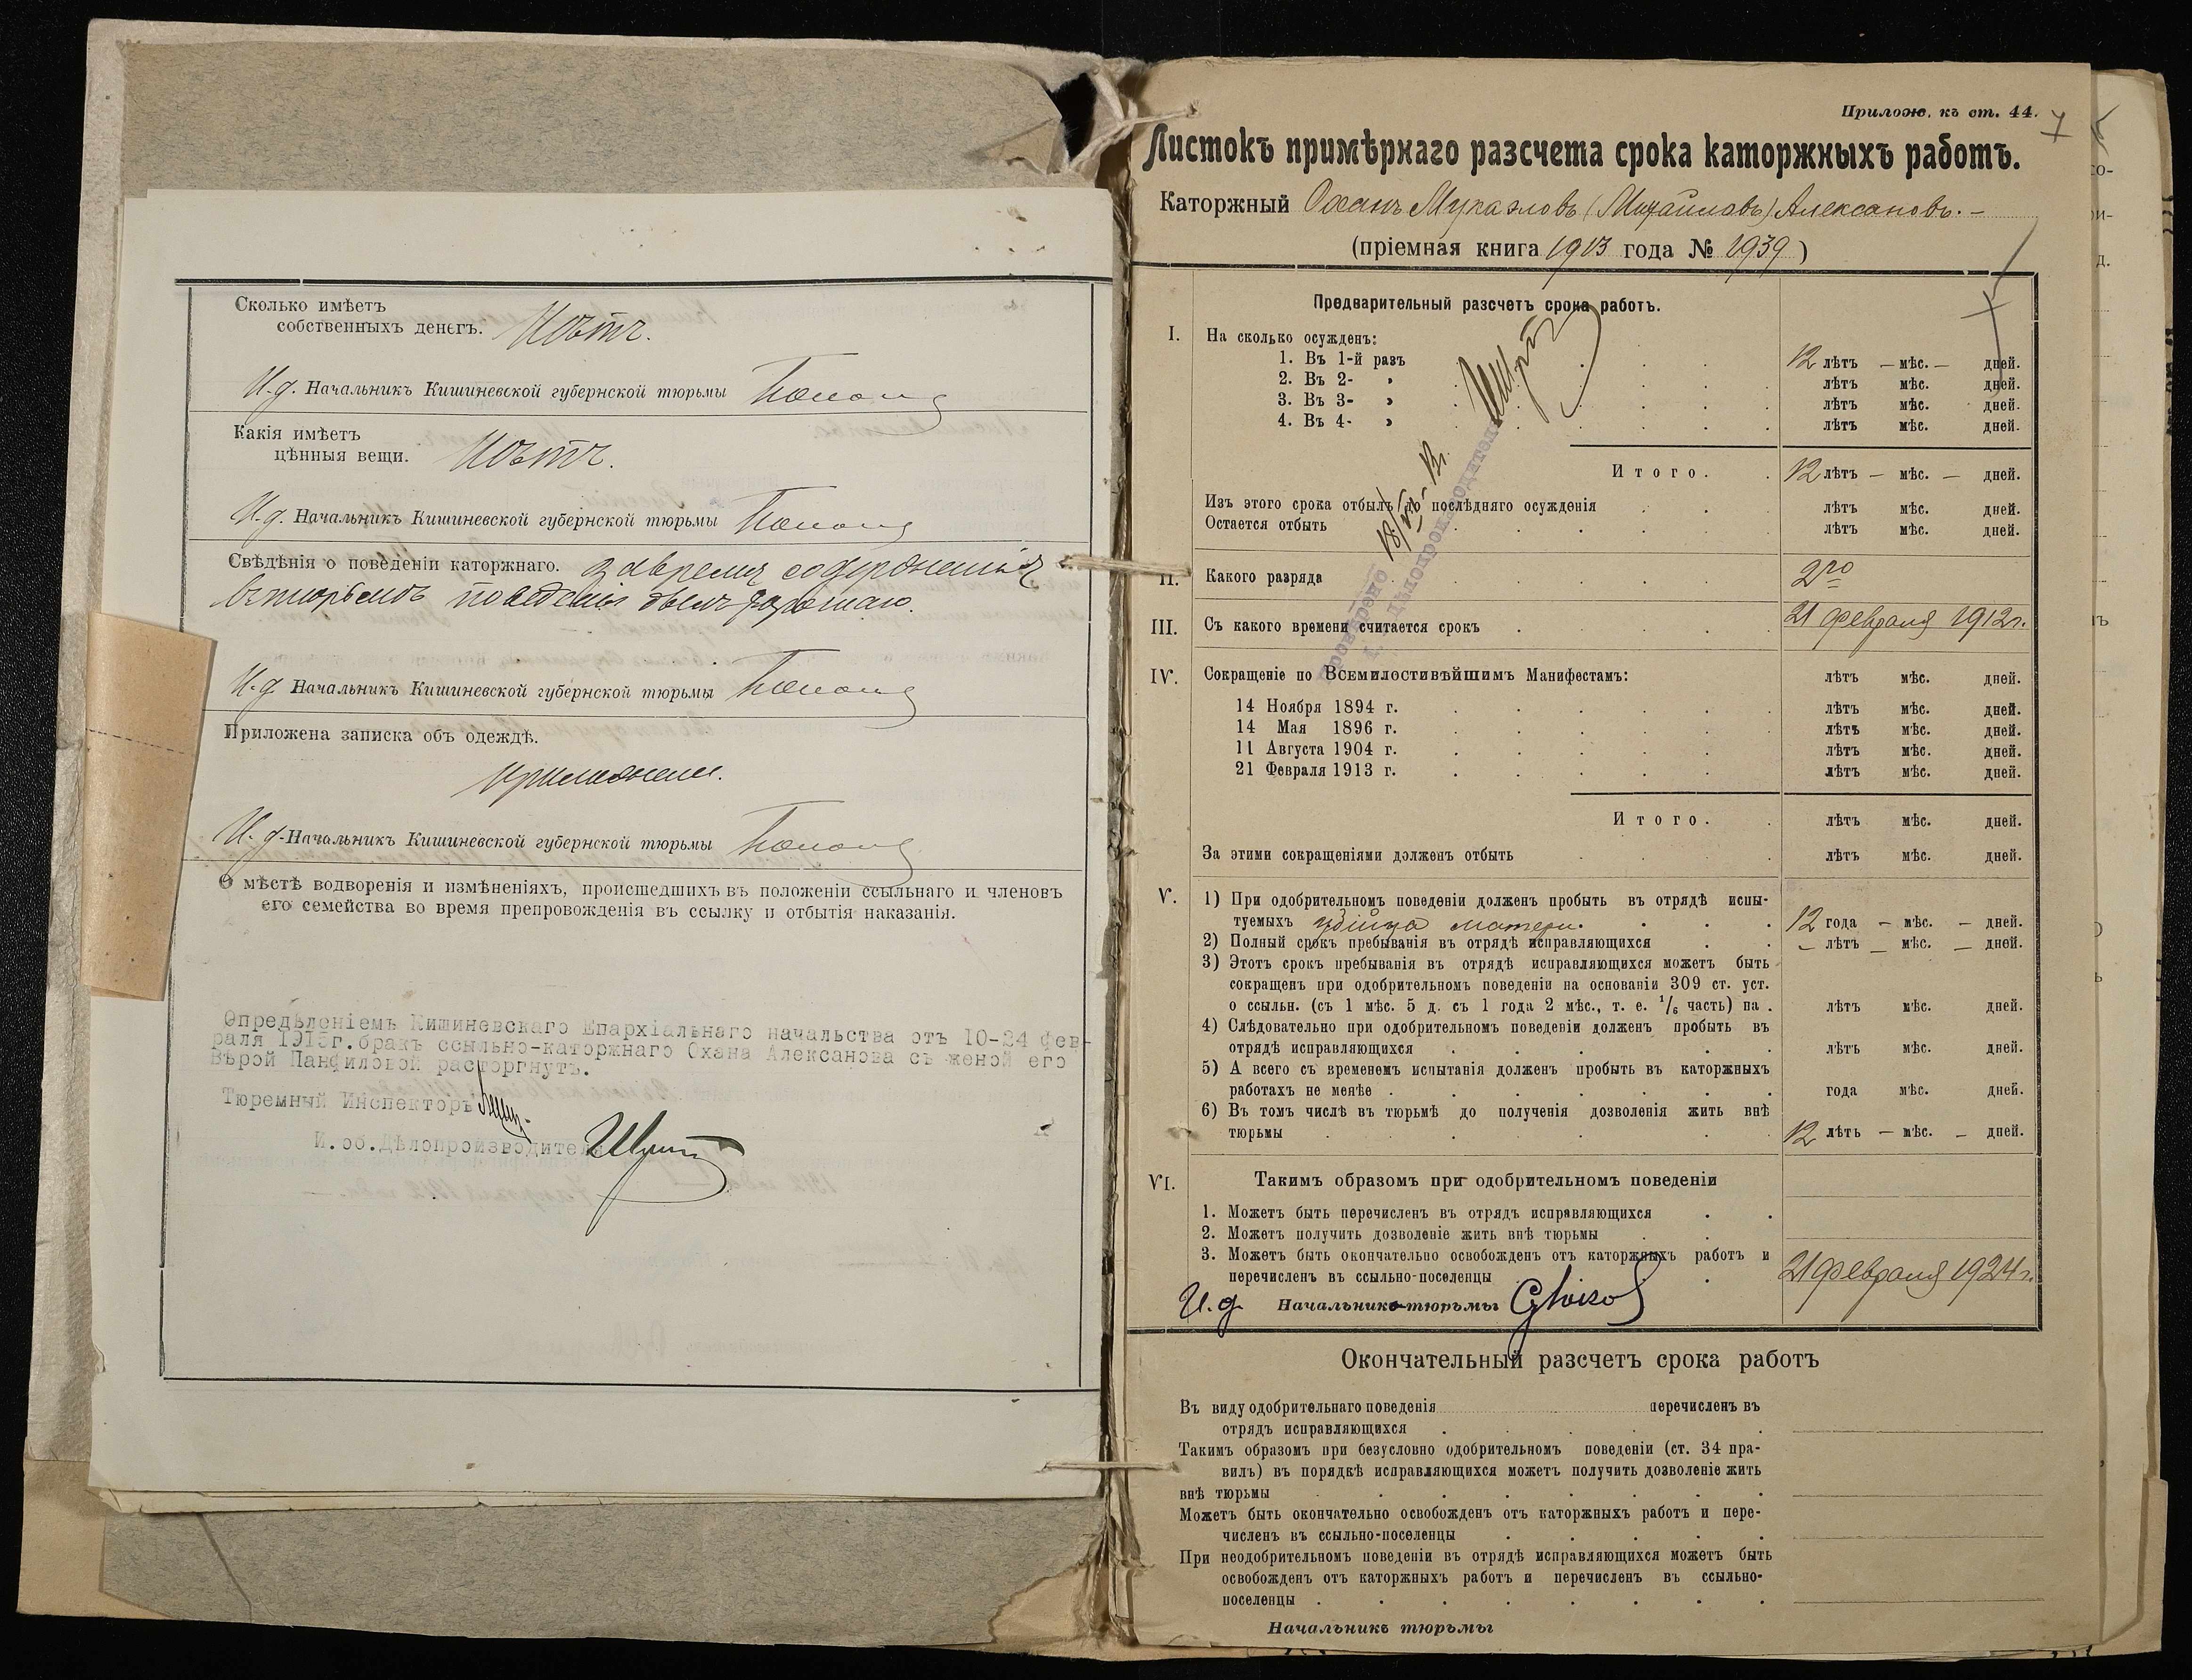 Сколько имѣетъ
собственныхъ денегъ. Нѣтъ.
И.д. Начальникъ Кишиневской губернской тюрьмы
Какія имѣетъ
цѣнныя вещи. Нѣтъ.
И.д. Начальникъ Кишиневской губернской тюрьмы
Свѣдѣнія о поведеніи каторжнаго. За время содержанія
въ тюрьмѣ поведенія былъ хорошаго.
И.д. Начальникъ Кишиневской губернской тюрьмы
Приложена записка объ одеждѣ.
И.д. Начальникъ Кишиневской губернской тюрьмы
О мѣстѣ водворенія и измѣненіяхъ, происшедшихъ въ положеніи ссыльнаго и членовъ
его семейства во время препровожденія въ ссылку и отбытія наказанія.
Опредѣленіемъ Кишиневскаго Епархіальнаго начальства отъ 10-24 фев-
раля 1915г. бракъ ссыльно-каторжнаго Охана Алексанова съ женой его
Вѣрой Панфиловой расторгнутъ.
Тюремный Инспекторъ
И.об.Дѣлопроизводителя
Прилож. къ ст. 44.
7
Листокъ примѣрнаго разсчета срока каторжныхъ работъ.
Каторжный Оханъ Мукаэловъ (Михайловъ) Алексановъ. –
(пріемная книга 1913 года № 1939)
Предварительный разсчетъ срока работъ.
I. На сколько осужденъ:
1. Въ 1-й разъ 12 лѣтъ – мѣс. – дней.
2. Въ 2- » лѣтъ мѣс. дней.
3. Въ 3- » лѣтъ мѣс. дней.
4. Въ 4- » лѣтъ мѣс. дней.
Итого. 12 лѣтъ – мѣс. – дней.
Изъ этого срока отбылъ до послѣдняго осужденія лѣтъ мѣс. дней.
Остается отбыть лѣтъ мѣс. дней.
Провѣрено 18/VII-13г.
Дѣлопроизводитель
II. Какого разряда 2го
III. Съ какого времени считается срокъ 21 февраля 1912г.
IV. Сокращеніе по Всемилостивѣйшимъ Манифестамъ: лѣтъ мѣс. дней.
14 Ноября 1894 г. лѣтъ мѣс. дней.
14 Мая 1896 г. лѣтъ мѣс. дней.
11 Августа 1904 г. лѣтъ мѣс. дней.
21 Февраля 1913 г. лѣтъ мѣс. дней.
Итого. лѣтъ мѣс. дней.
За этими сокращеніями долженъ отбыть лѣтъ мѣс. дней.
V. 1) При одобрительномъ поведеніи долженъ пробыть въ отрядѣ испы-
туемыхъ убійца матери. 12 года – мѣс. – дней.
2) Полный срокъ пребыванія въ отрядѣ исправляющихся – лѣтъ – мѣс. – дней.
3) Этотъ срокъ пребыванія въ отрядѣ исправляющихся можетъ быть
сокращенъ при одобрительномъ поведеніи на основаніи 309 ст. уст.
о ссыльн. (съ 1 мѣс. 5 д. съ 1 года 2 мѣс., т. е. 1/6 часть) на . лѣтъ мѣс. дней.
4) Слѣдовательно при одобрительномъ поведеніи долженъ пробыть въ
отрядѣ исправляющихся лѣтъ мѣс. дней.
5) А всего съ временемъ испытанія долженъ пробыть въ каторжныхъ
работахъ не менѣе . года мѣс. дней.
6) Въ томъ числѣ въ тюрьмѣ до полученія дозволенія жить внѣ
тюрьмы 12 лѣтъ – мѣс. – дней.
VI. Такимъ образомъ при одобрительномъ поведеніи
1. Можетъ быть перечисленъ въ отрядъ исправляющихся
2. Можетъ получить дозволеніе жить внѣ тюрьмы
3. Можетъ быть окончательно освобожденъ отъ каторжныхъ работъ и
перечисленъ въ ссыльно-поселенцы 21 февраля 1924г.
И.д. Начальникъ тюрьмы
Окончательный разсчетъ срока работъ
Въ виду одобрительнаго поведенія перечисленъ въ
отрядъ исправляющихся
Такимъ образомъ при безусловно одобрительномъ поведеніи (ст. 34 пра-
вилъ) въ порядкѣ исправляющихся можетъ получить дозволеніе жить
внѣ тюрьмы
Можетъ быть окончательно освобожденъ отъ каторжныхъ работъ и пере-
численъ въ ссыльно-поселенцы
При неодобрительномъ поведеніи въ отрядѣ исправляющихся можетъ быть
освобожденъ отъ каторжныхъ работъ и перечисленъ въ ссыльно-
поселенцы
Начальникъ тюрьмы